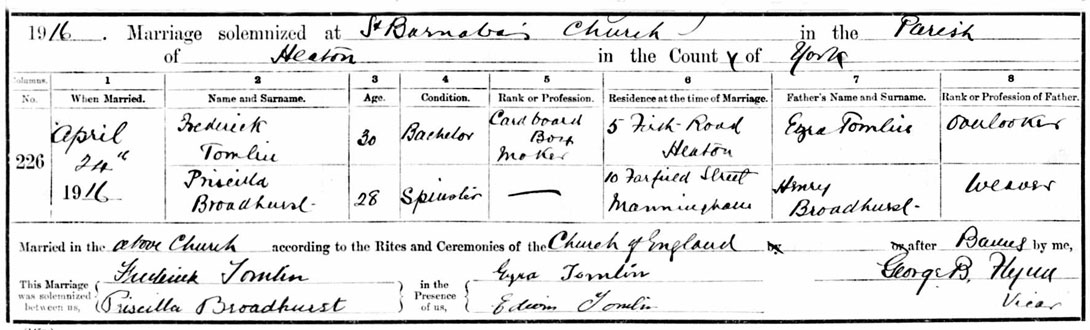 1916. Marriage solemnized at St Barnabas Church in the Parish
of Heaton in the County of York
Columns. 1 2 3 4 5 6 7 8
No. When Married. Name and Surname. Age. Condition. Rank or Profession. Residence at the time of Marriage. Father's Name and Surname. Rank or Profession of Father.
226 April 24th 1916 Frederick Tomlin 30 Bachelor Cardboard Box Maker 5 Firth Road Heaton Ezra Tomlin Overlooker
Priscilla Broadhurst 28 Spinster — 10 Farfield Street Manningham Henry Broadhurst Weaver
Married in the above Church according to the Rites and Ceremonies of the Church of England by or after Banns by me,
This Marriage was solemnized between us, Frederick Tomlin Priscilla Broadhurst in the Presence of us, Ezra Tomlin Edwin Tomlin George B. Flynn Vicar